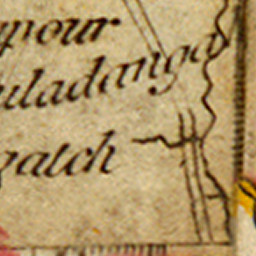 pour
uladanga
gatch